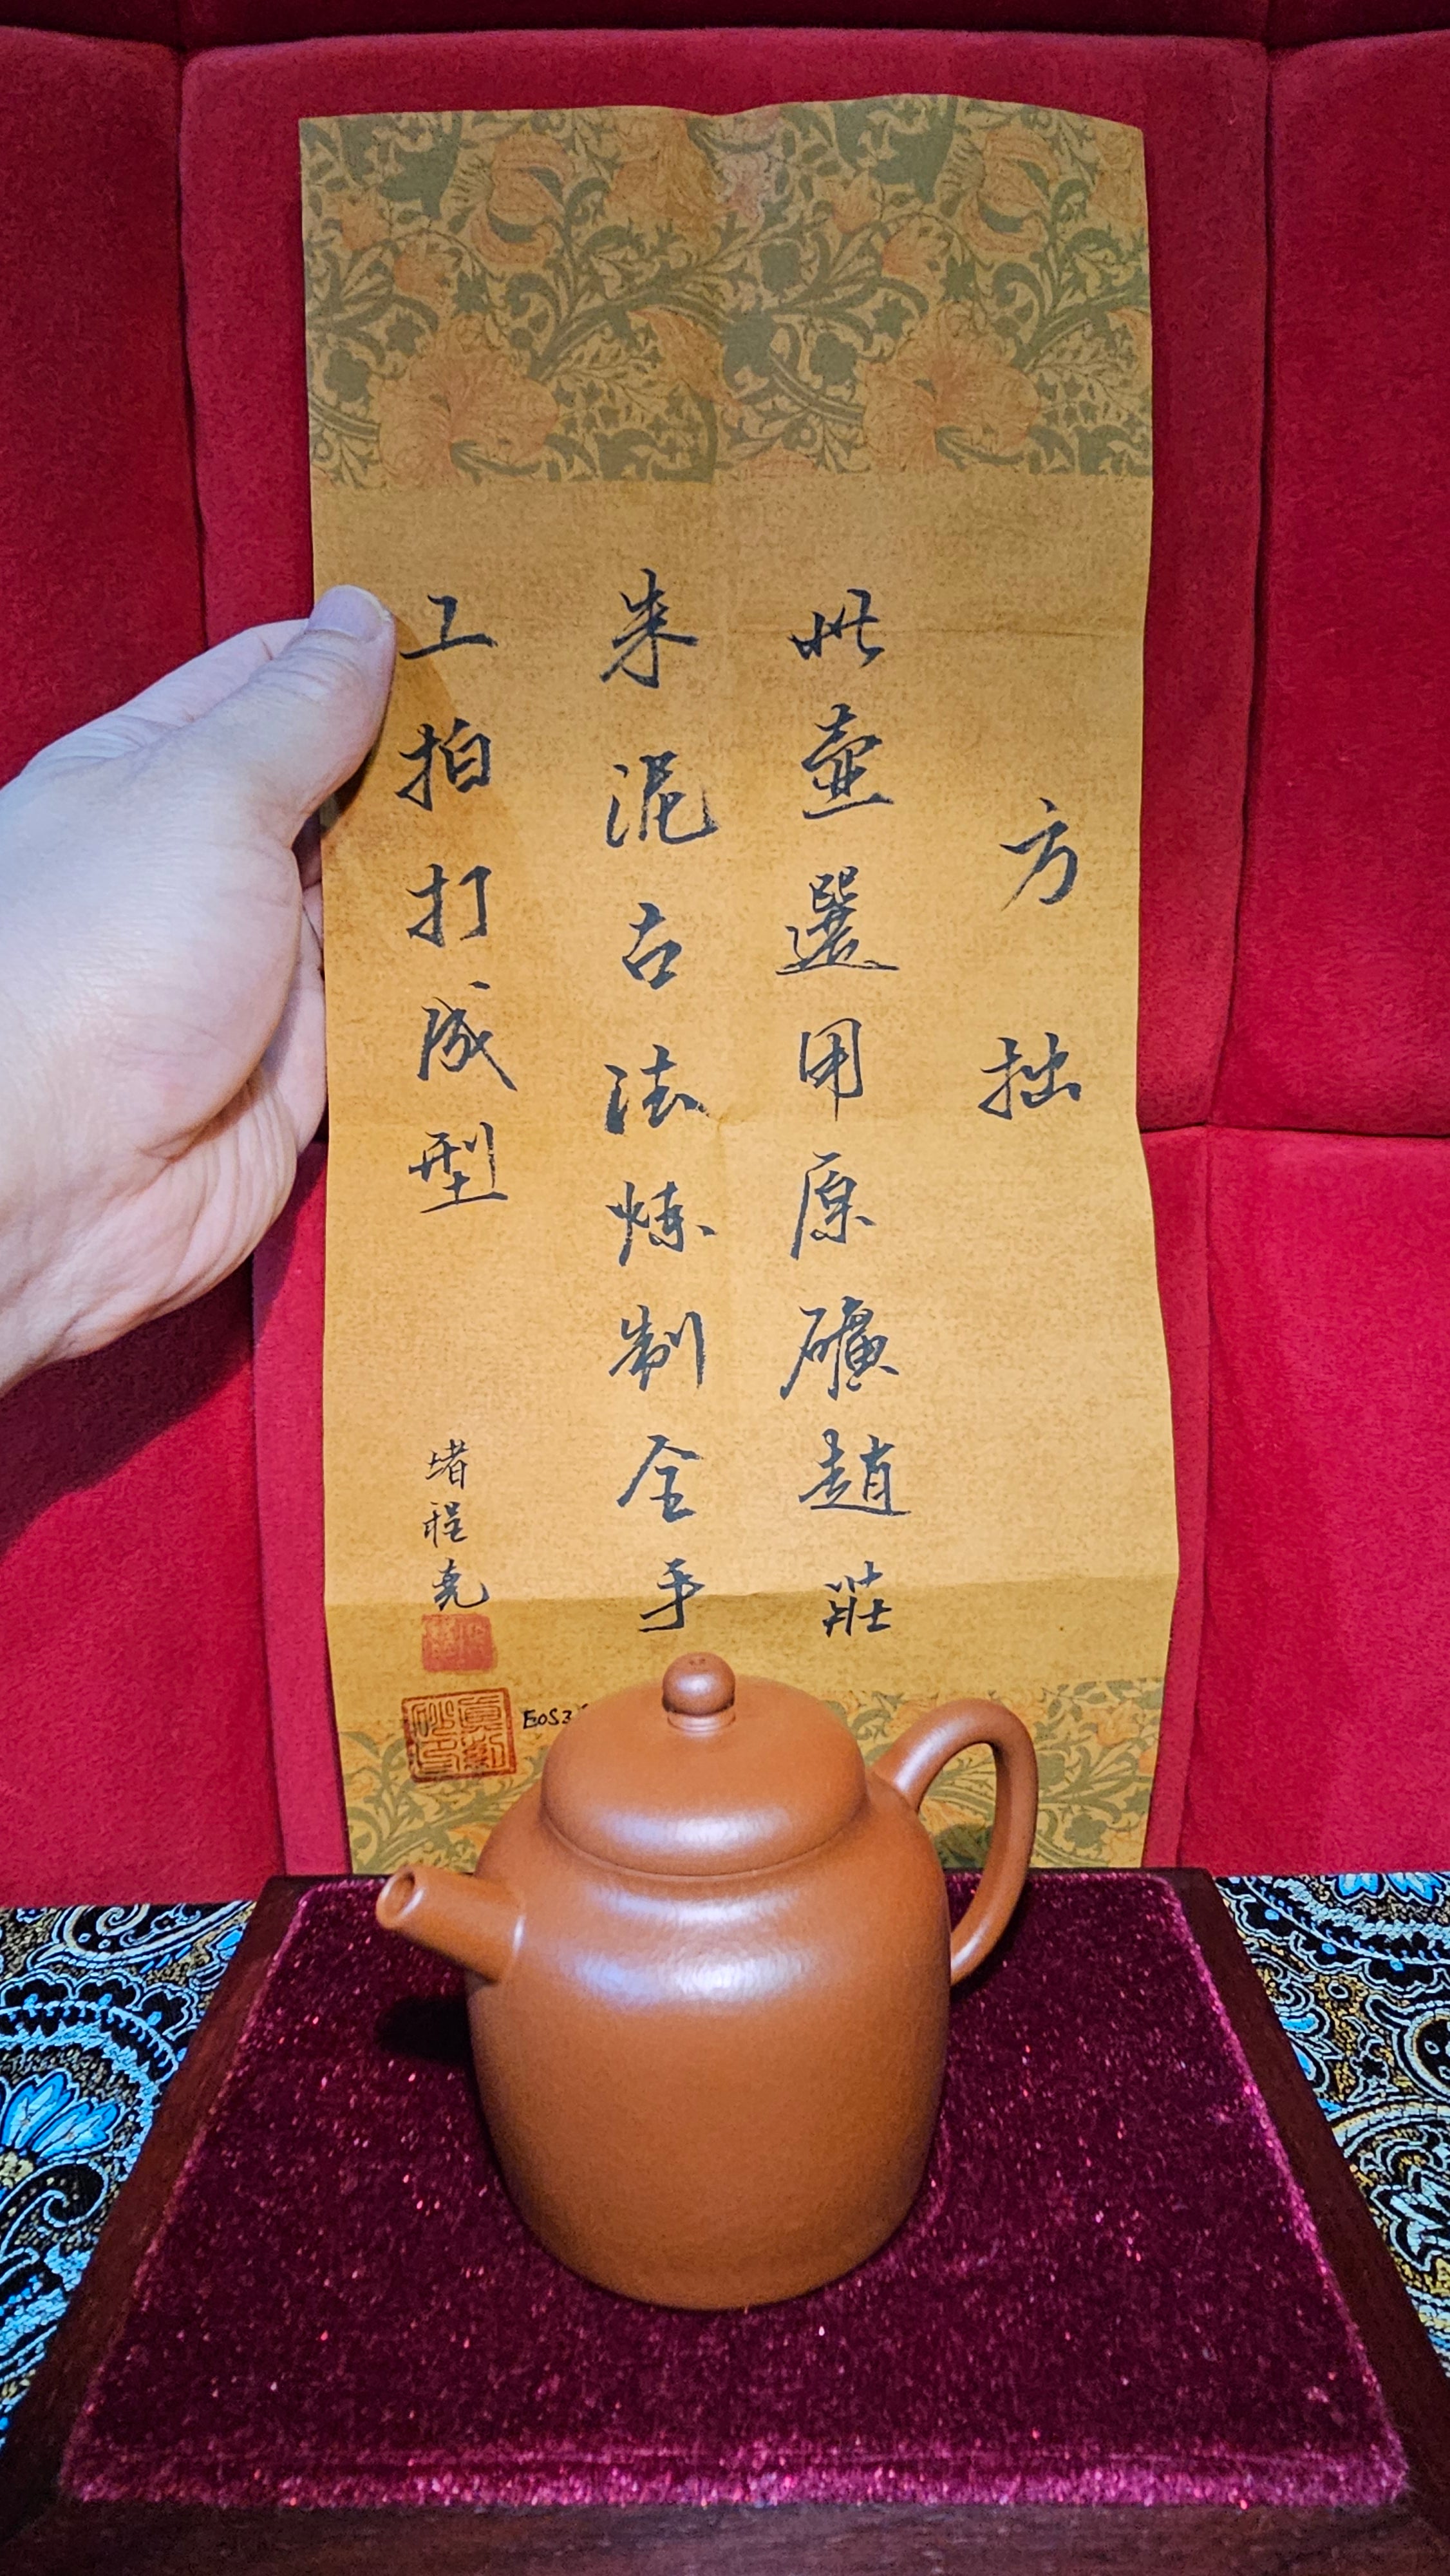 方拙
此壺選用原礦趙莊
朱泥古法煉制全手
工拍打成型
堵程尧
EOS3